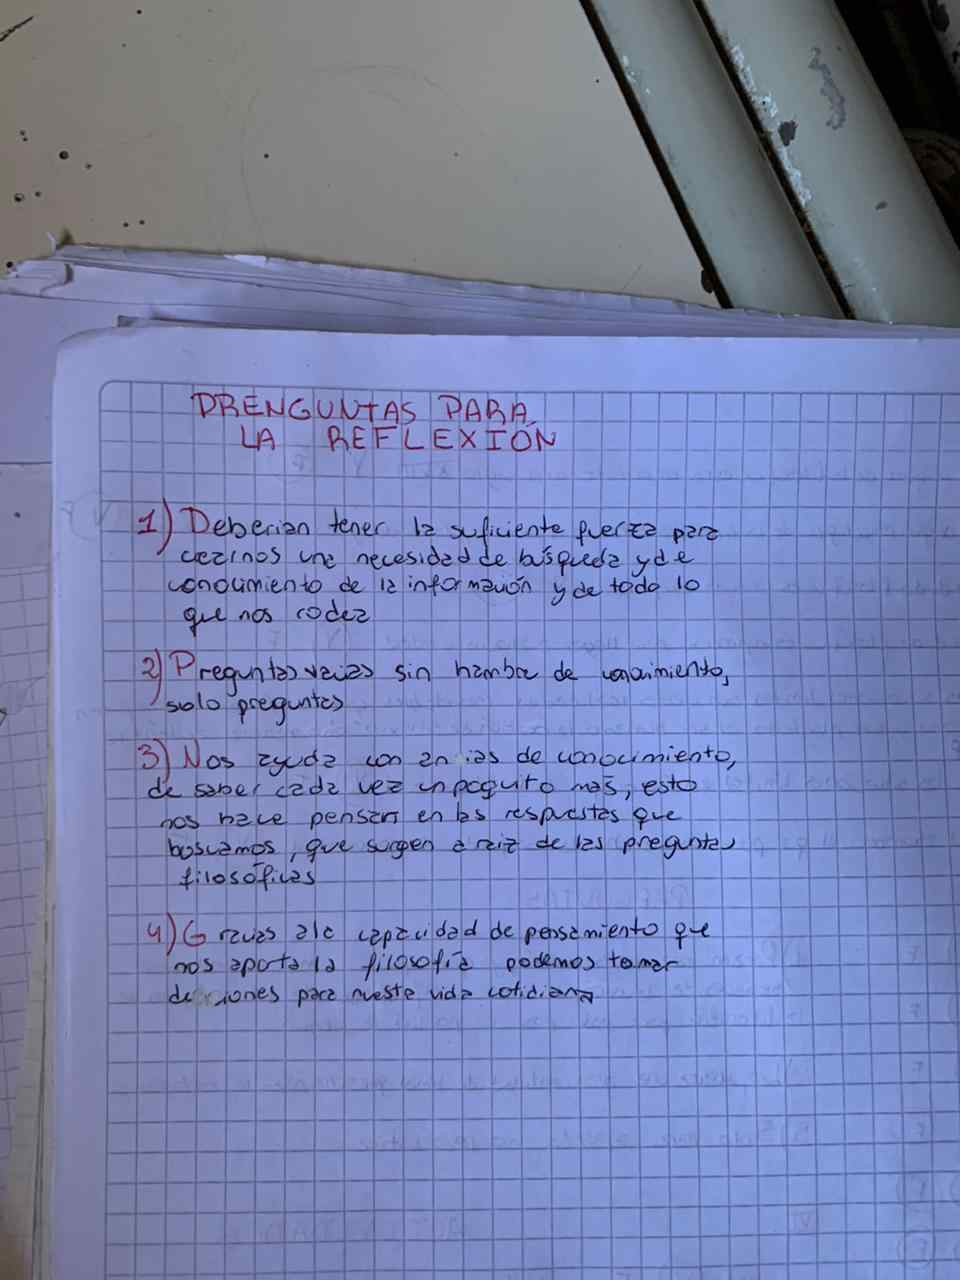 PRENGUNTAS PARA
LA REFLEXIÓN
1) Deberian tener la suficiente fuerza para
crearnos una necesidad de búsqueda y de
conocimiento de la información y de todo lo
que nos rodea
2) Preguntas vacias sin hambre de conocimiento,
solo preguntas
3) Nos ayuda con ansias de conocimiento,
de saber cada vez un poquito más, esto
nos hace pensar en las respuestas que
buscamos, que surgen a raiz de las preguntas
filosóficas
4) Gracias a la capacidad de pensamiento que
nos aporta la filosofía podemos tomar
decisiones para nuestra vida cotidiana